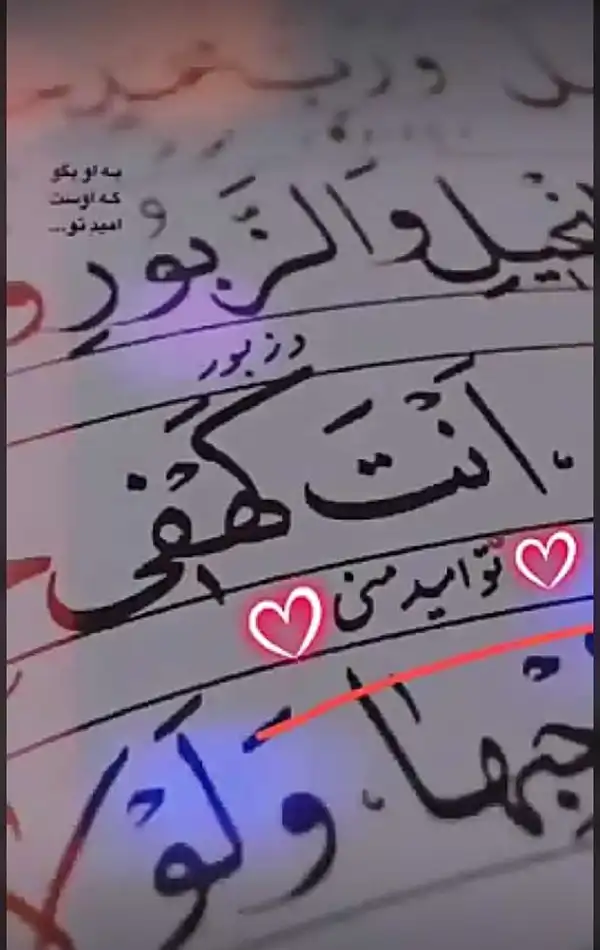 به او بگو
که اوست
امید تو...
نْجیلِ وَالزَّبُورِ و
و زبور
اَنْتَ کَهْفی
تو امید منی
وَلَوْلا